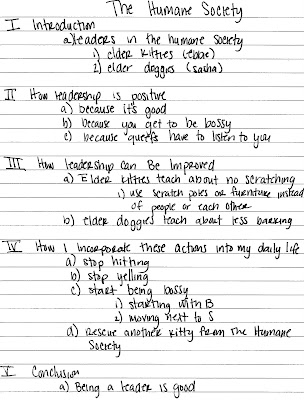 The Humane Society
I Introduction
a) leaders in the humane society
1) elder kitties (ebbie)
2) elder doggies (sasha)
II How leadership is positive
a) because it's good
b) because you get to be bossy
c) because queefs have to listen to you
III How leadership can Be Improved
a) Elder kitties teach about no scratching
1) use scratch poles or furniture instead
of people or each other
b) elder doggies teach about less barking
IV How I incorporate these actions into my daily life
a) stop hitting
b) stop yelling
c) start being bossy
1) starting with B
2) moving next to S
d) Rescue another kitty from the Humane
Society
V Conclusion
a) Being a leader is good